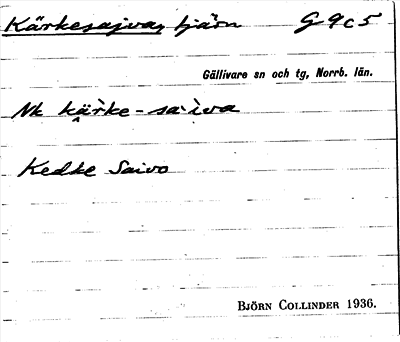 Kärkesajva, tjärn G 9 c 5
Gällivare sn och tg, Norrb. län.
Nk kä̀rke-sa·ìva
Kedke Saivo
BJÖRN COLLINDER 1936.